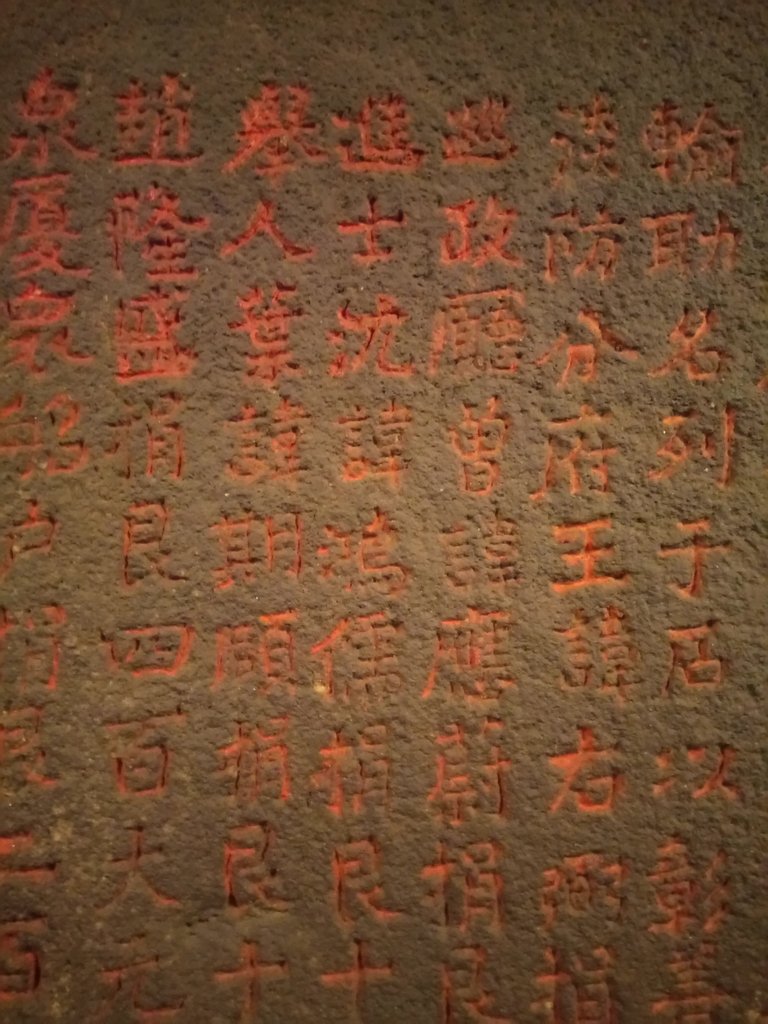 輸助名列于石以彰善
淡防分府王諱右弼捐
巡政廳曾諱應蔚捐艮
進士沈諱鴻儒捐艮十
舉人葉諱期頤捐艮十
趙隆盛捐艮四百大元
泉厦衆船户捐艮二百